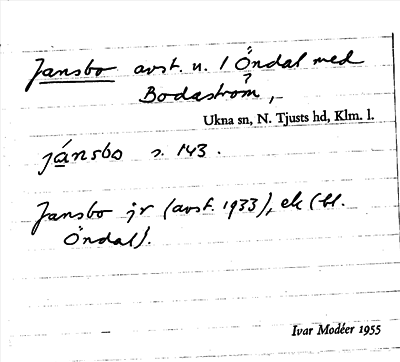 Jansbo avst. u. 1 Öndal med
Bodaström,
?
Ukna sn, N. Tjusts hd, Klm. l.
jánsbo s. 143.
Jansbo jr (avst. 1933), ek (bl.
Öndal).
Ivar Modéer 1955